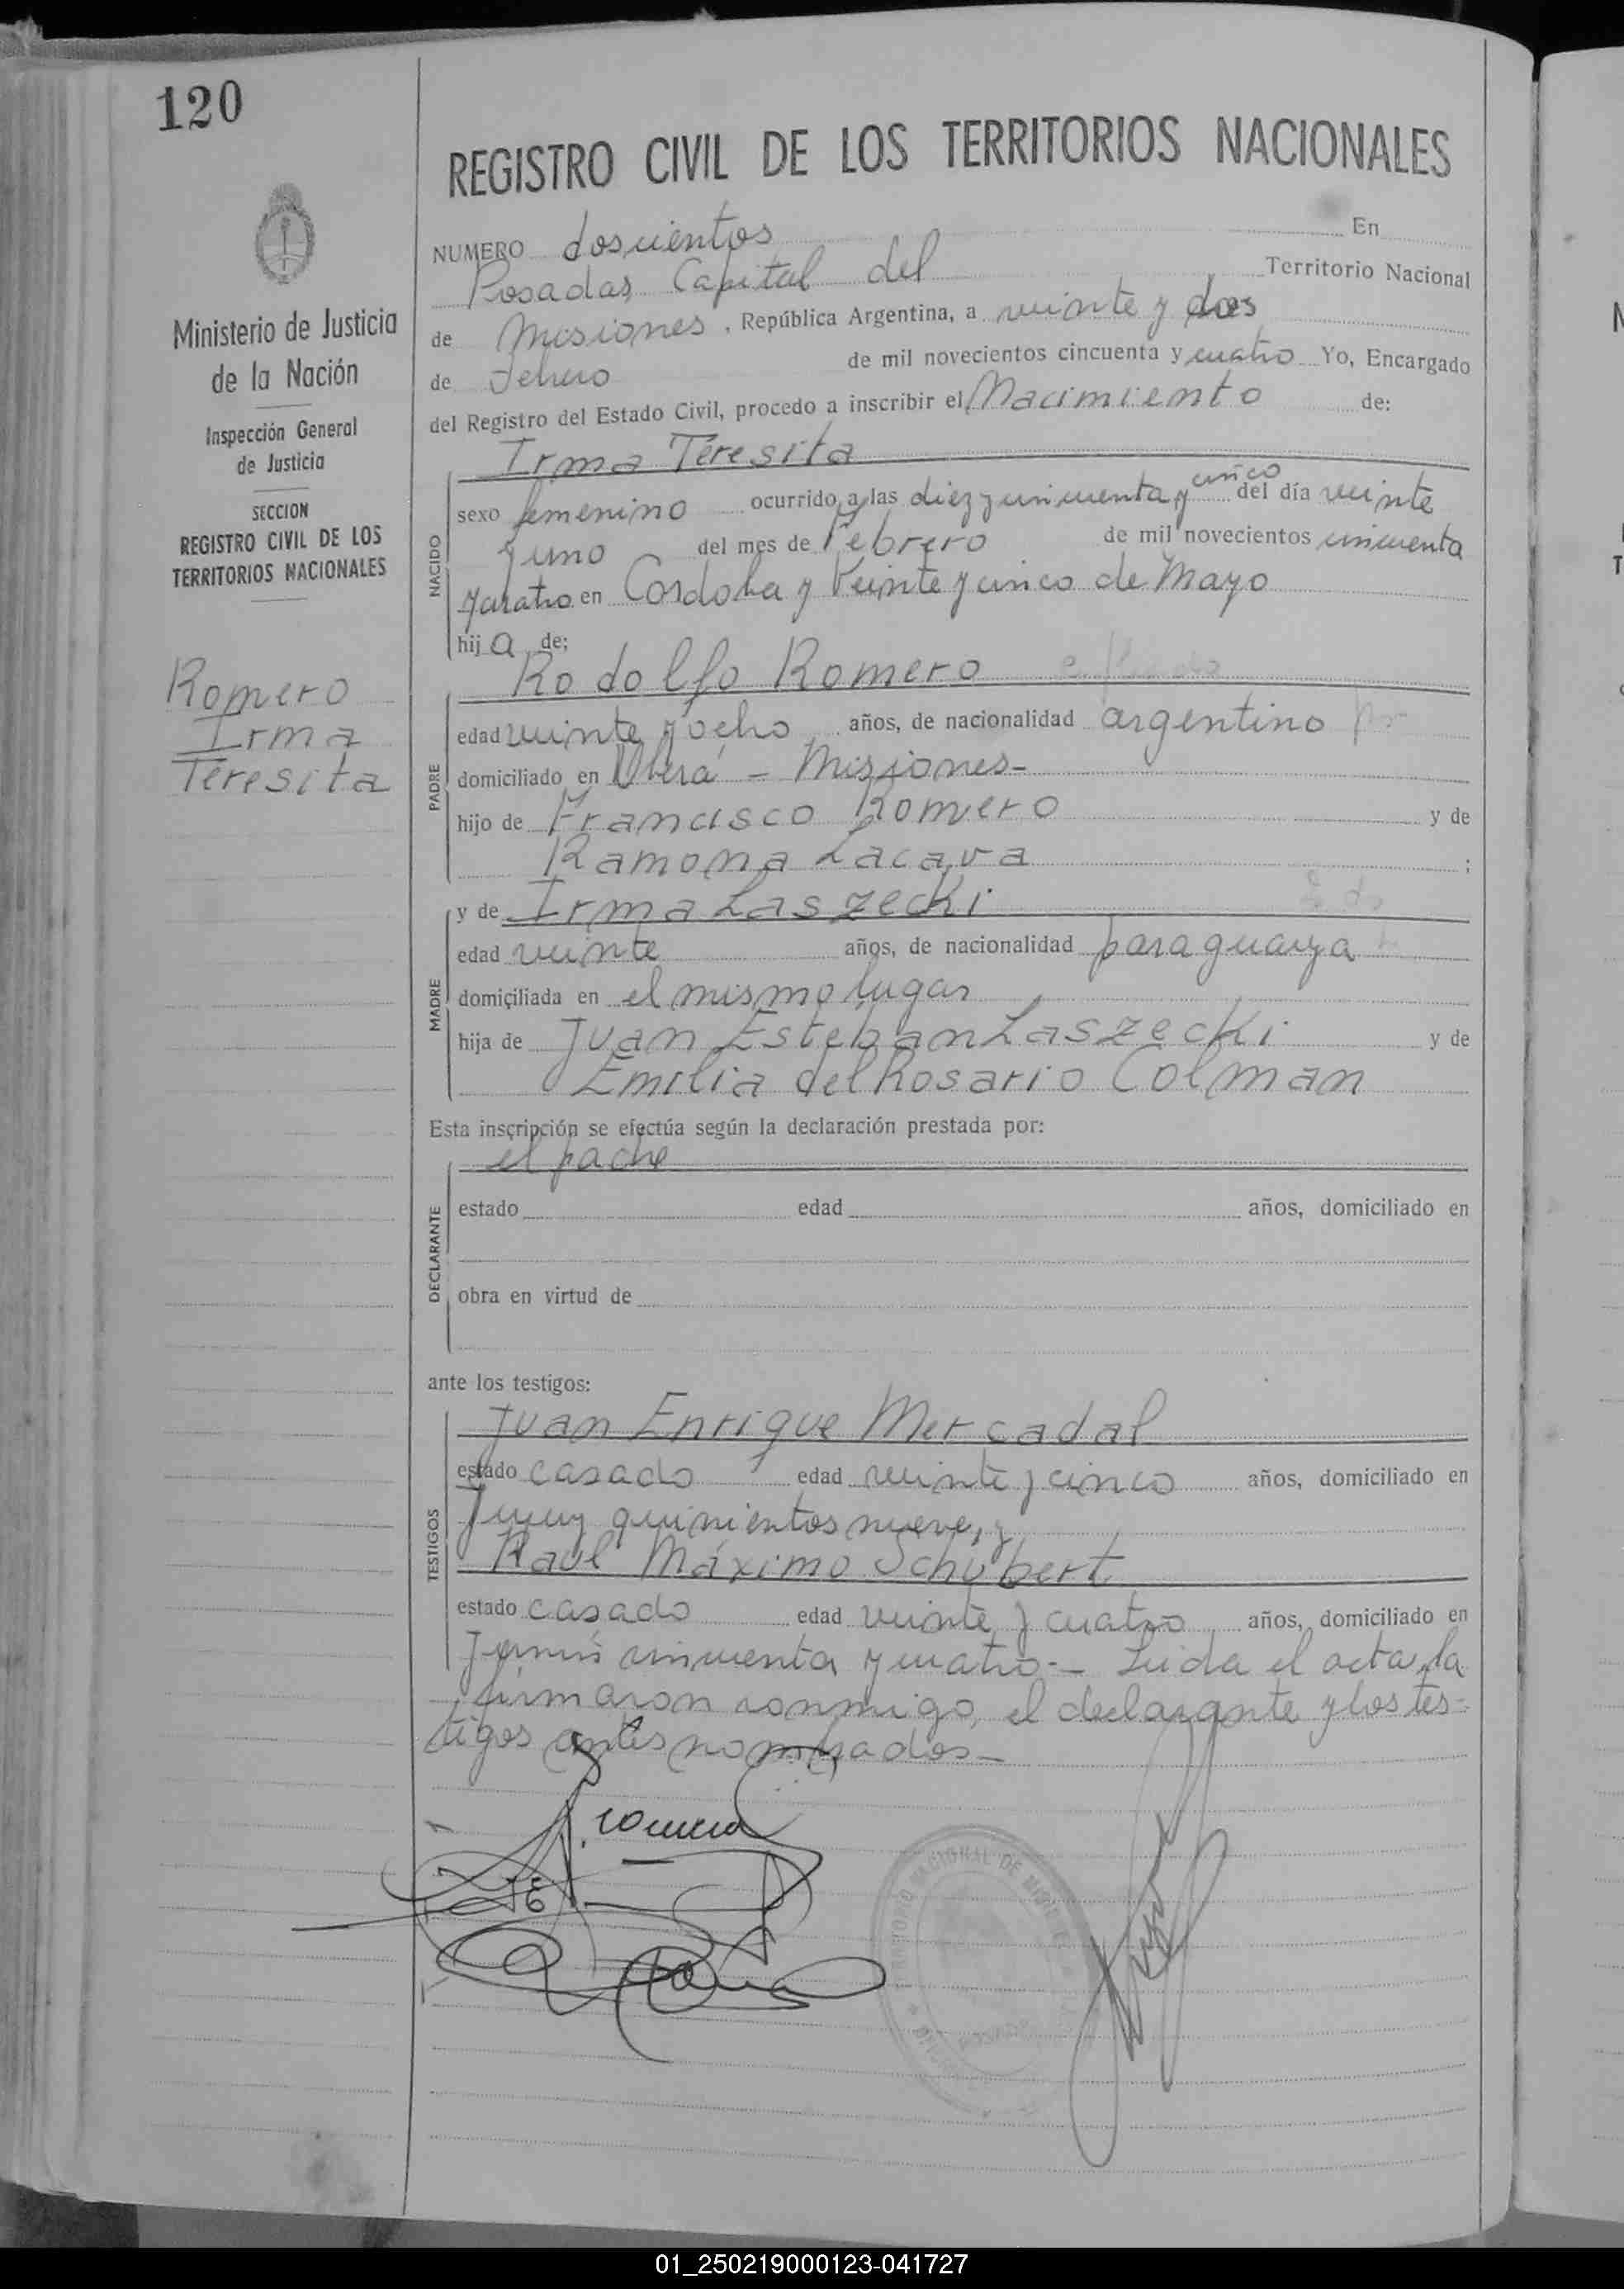 120
REGISTRO CIVIL DE LOS TERRITORIOS NACIONALES
NUMERO doscientos En
Posadas, Capital del Territorio Nacional
de Misiones, República Argentina, a veinte y dos
de Febrero de mil novecientos cincuenta y cuatro Yo, Encargado
del Registro del Estado Civil, procedo a inscribir el Nacimiento de:
Irma Teresita
NACIDO
sexo femenino ocurrido a las diez y cincuenta y cinco del día veinte
y uno del mes de Febrero de mil novecientos cincuenta
y cuatro en Cordoba y Veinte y cinco de Mayo
hija de;
Rodolfo Romero
PADRE
edad veinte y ocho años, de nacionalidad argentino
domiciliado en Oberá - Misiones-
hijo de Francisco Romero y de
Ramona Lacava ;
MADRE
y de Irma Laszecki
edad veinte años, de nacionalidad paraguaya
domiciliada en el mismo lugar
hija de Juan Esteban Laszecki y de
Emilia del Rosario Colman
Esta inscripción se efectúa según la declaración prestada por:
el padre
DECLARANTE
estado edad años, domiciliado en
obra en virtud de
ante los testigos:
TESTIGOS
Juan Enrique Mercadal
estado casado edad veinte y cinco años, domiciliado en
Jujuy quinientos nueve, y
Raul Máximo Schubert
estado casado edad veinte y cuatro años, domiciliado en
cincuenta y cuatro.- Leida el acta, la
firmaron conmigo, el declarante y los tes=
tigos antes nombrados-
Ministerio de Justicia
de la Nación
Inspección General
de Justicia
SECCION
REGISTRO CIVIL DE LOS
TERRITORIOS NACIONALES
Romero
Irma
Teresita
01_250219000123-041727